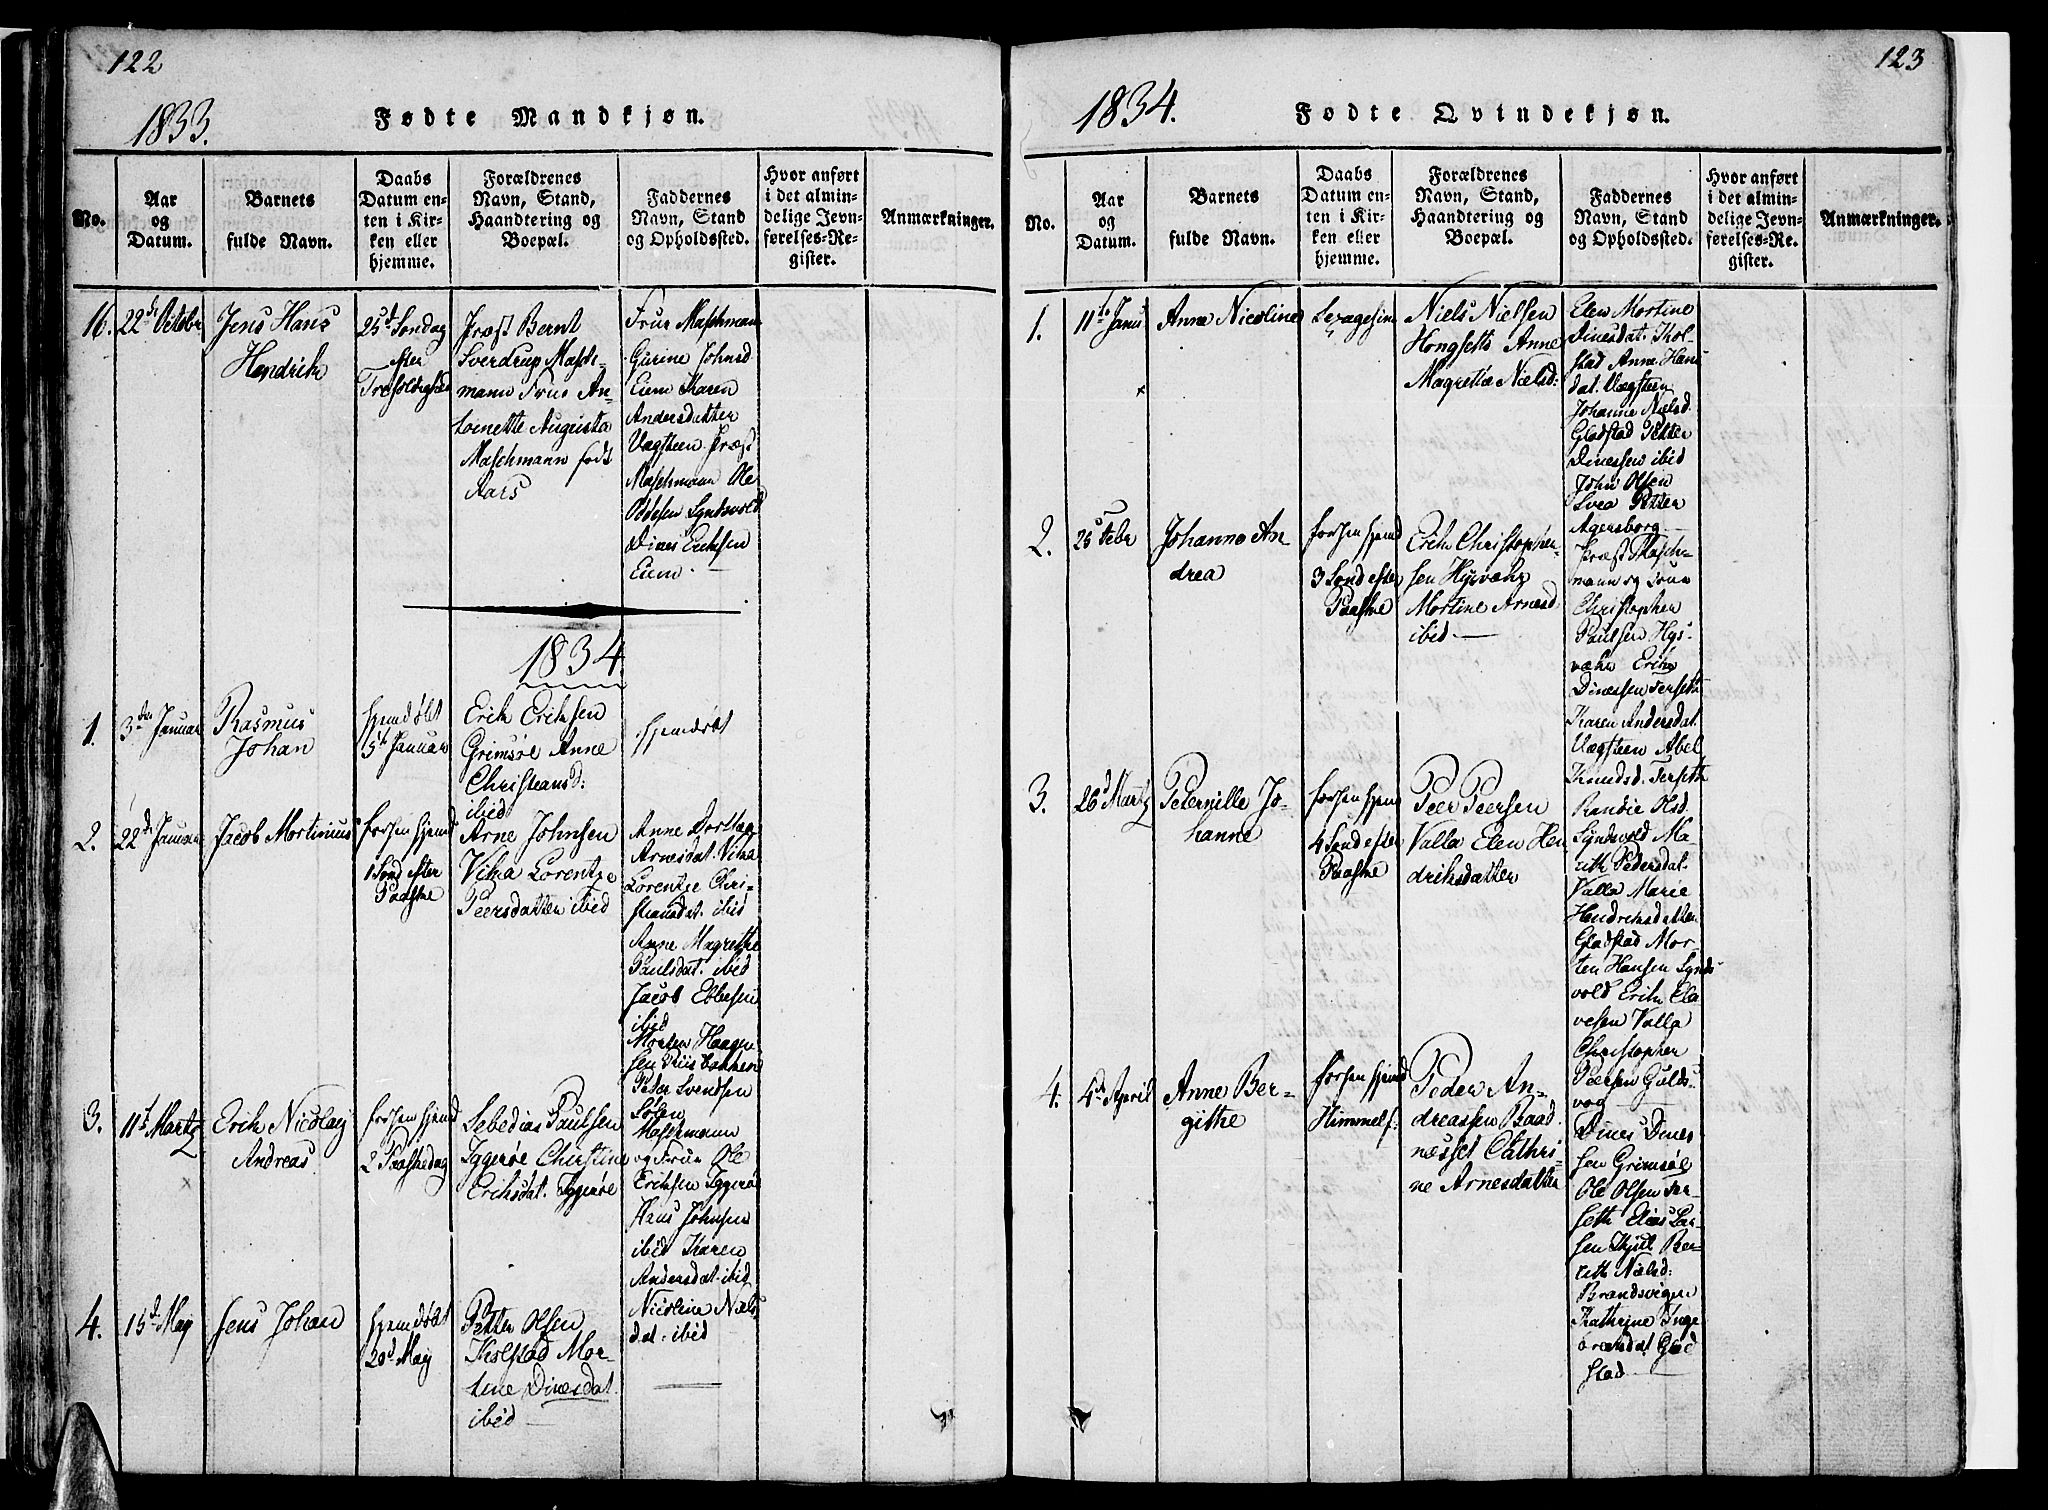 122
1833.
Fødte Mandkjøn.
No.
Aar
og
Datum.
Barnets
fulde Navn.
Daabs
Datum en-
ten i Kir-
ken eller
hjemme.
Forældrenes
Navn, Stand,
Haandtering og
Boepæl.
Faddernes
Navn, Stand
og Opholdssted.
Hvor anført
i det almin-
delige Jevn-
førelses-Re-
gister.
Anmærkninger.
16.
22de Octobr
Jens Hans
Hendrik
25d Søndag
efter
Præst Bernt
Sverdrup Masch-
mann Frue An-
toinette Augusta
Maschmann født
Aars
Frue Maschmann
Gurine Johnsd
Eiem Karen
Andersdatter
Vægsteen Præst
Maschmann Ole
Oddesen Lyndsvold
Dines Eriksen
Eiem.
1834.
1.
3den Januar
Rasmus
Johan
hjemdøbt
5te Januar
Erik Eriksen
Grimsøe Anne
Christiansd:
ibid
hjemdøbt
2.
22de Januar
Jacob Mortinius
forhen hjemd
1 Sønd efter
Paaske
Arne Johnsen
Vika Lorentze
Peersdatter ibid
Anne Dorthea
Arnesdat. Vika
Lorentze Chri-
stiansdat. ibid
Anne Magrethe
Paulsdat. ibid
Jacob Ebbesen
ibid
Morten Haagen
sen
Peder Svendsen
3.
11te Martz
Erik Nicolay
Andreas
forhen hjemd
2 Paaskedag
Sebedias Paulsen
Iggerøe Christine
Eriksdat. Iggerøe
Maschmann
og Frue Ole
Eriksen Iggerøe
Hans Johnsen
ibid Karen
Andersdat. ibid
Nicoline Niels
dat. ibid
4.
15d May
Jens Johan
hjemdøbt
20d May
Petter Olsen
Kolstad Mor-
tine Dinesdat.
ibid
123
1834.
Fødte Qvindekjøn.
No.
Aar
og
Datum.
Barnets
fulde Navn.
Daabs
Datum en-
ten i Kir-
ken eller
hjemme.
Forældrenes
Navn, Stand,
Haandtering og
Boepæl.
Faddernes
Navn, Stand
og Opholdssted.
Hvor anført
i det almin-
delige Jevn-
førelses-Re-
gister.
Anmærkninger.
1.
11te Janu
Anne Nicoline
Niels Nielsen
Hongseth Anne
Magretie Nielsd:
Elen Mortine
Dinesdat. Kol-
stad Anne Hans
dat. Vægsteen
Johanne Nielsd
Gladstad Petter
Dinessen ibid
John Olsen
Svea Petter
Agersborg
2.
25 Febr
Johanna An
drea
forhen hjemd
3 Sønd efter
Paaske
Erik Christopher-
sen Hysvær
Mortine Arnesd
ibid
Præst Masch-
mann og Frue
Christopher
Paulsen Hys-
vær Erik
Dinessen Terseth
Karen Andersdat.
Vægsteen Abel
Knudsd. Terseth
3.
26d Martz
Peternille Jo-
hanne
forhen hjemd
4 Sønd efter
Paaske
Peer Peersen
Valla Elen Hen
driksdatter
Randie Olsd
Lyndsvold Ma-
rith Pedersdat.
Valla Marie
Hendriksdatter
Gladstad Mor-
ten Hansen Lynds
vold Erik Ela-
vesen Valla
Christopher
Peersen Gulds-
vog
4.
4de April
Anne Ber-
githe
forhen hjemd
Himmelf:
Peder An-
dreassen Baad
næsset Cathri-
ne Arnesdatter
Dines Dines
sen Grimsøe
Ole Olsen Ter-
seth Elias Lar-
sen Kjul Be-
reth Nielsd:
Brandsvigen
Kathrine Inge
brexdat Glad
stad